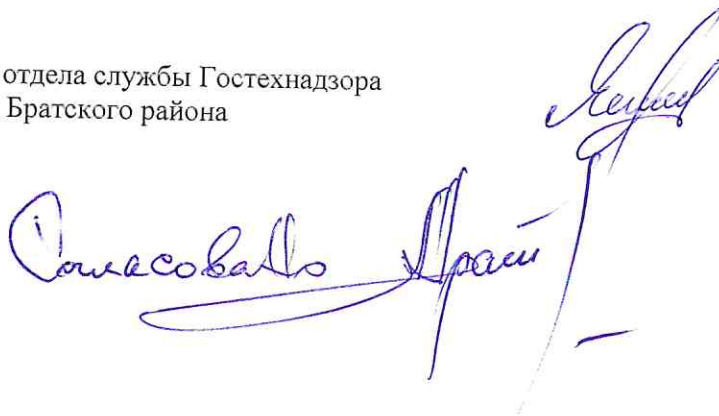 отдела службы Гостехнадзора
Братского района
Согласовано